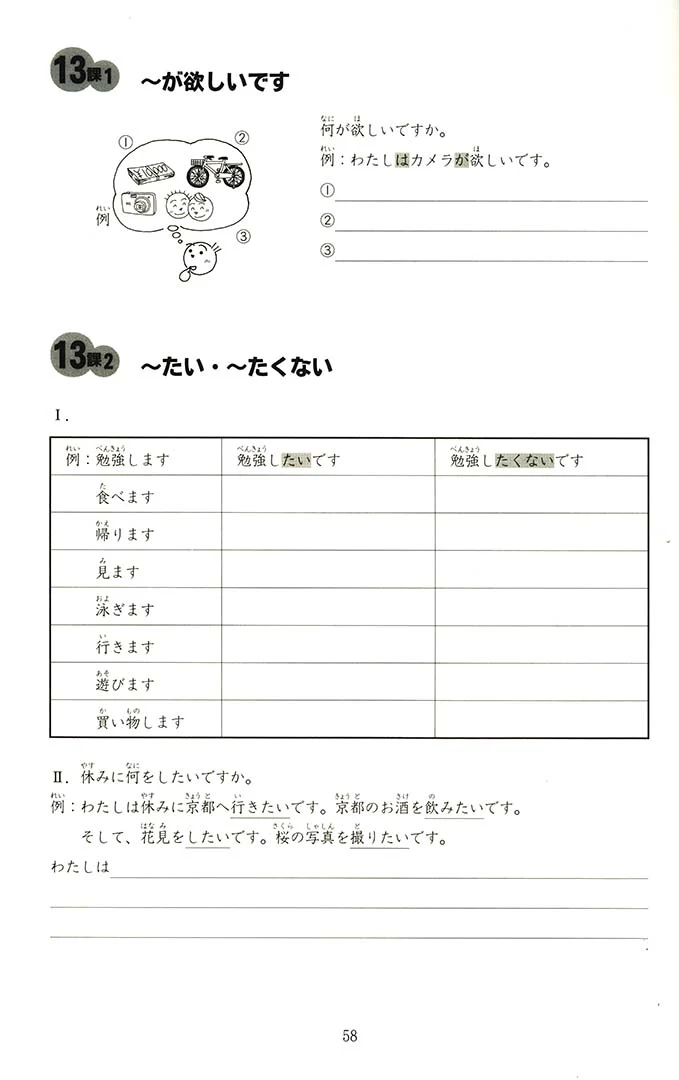 13課1 ～が欲しいです
① ②
¥10,000
例
③
何が欲しいですか。
例：わたしはカメラが欲しいです。
①
②
③
13課2 ～たい・～たくない
Ⅰ．
例：勉強します 勉強したいです 勉強したくないです
食べます
帰ります
見ます
泳ぎます
行きます
遊びます
買い物します
Ⅱ．休みに何をしたいですか。
例：わたしは休みに京都へ行きたいです。京都のお酒を飲みたいです。
そして、花見をしたいです。桜の写真を撮りたいです。
わたしは
58